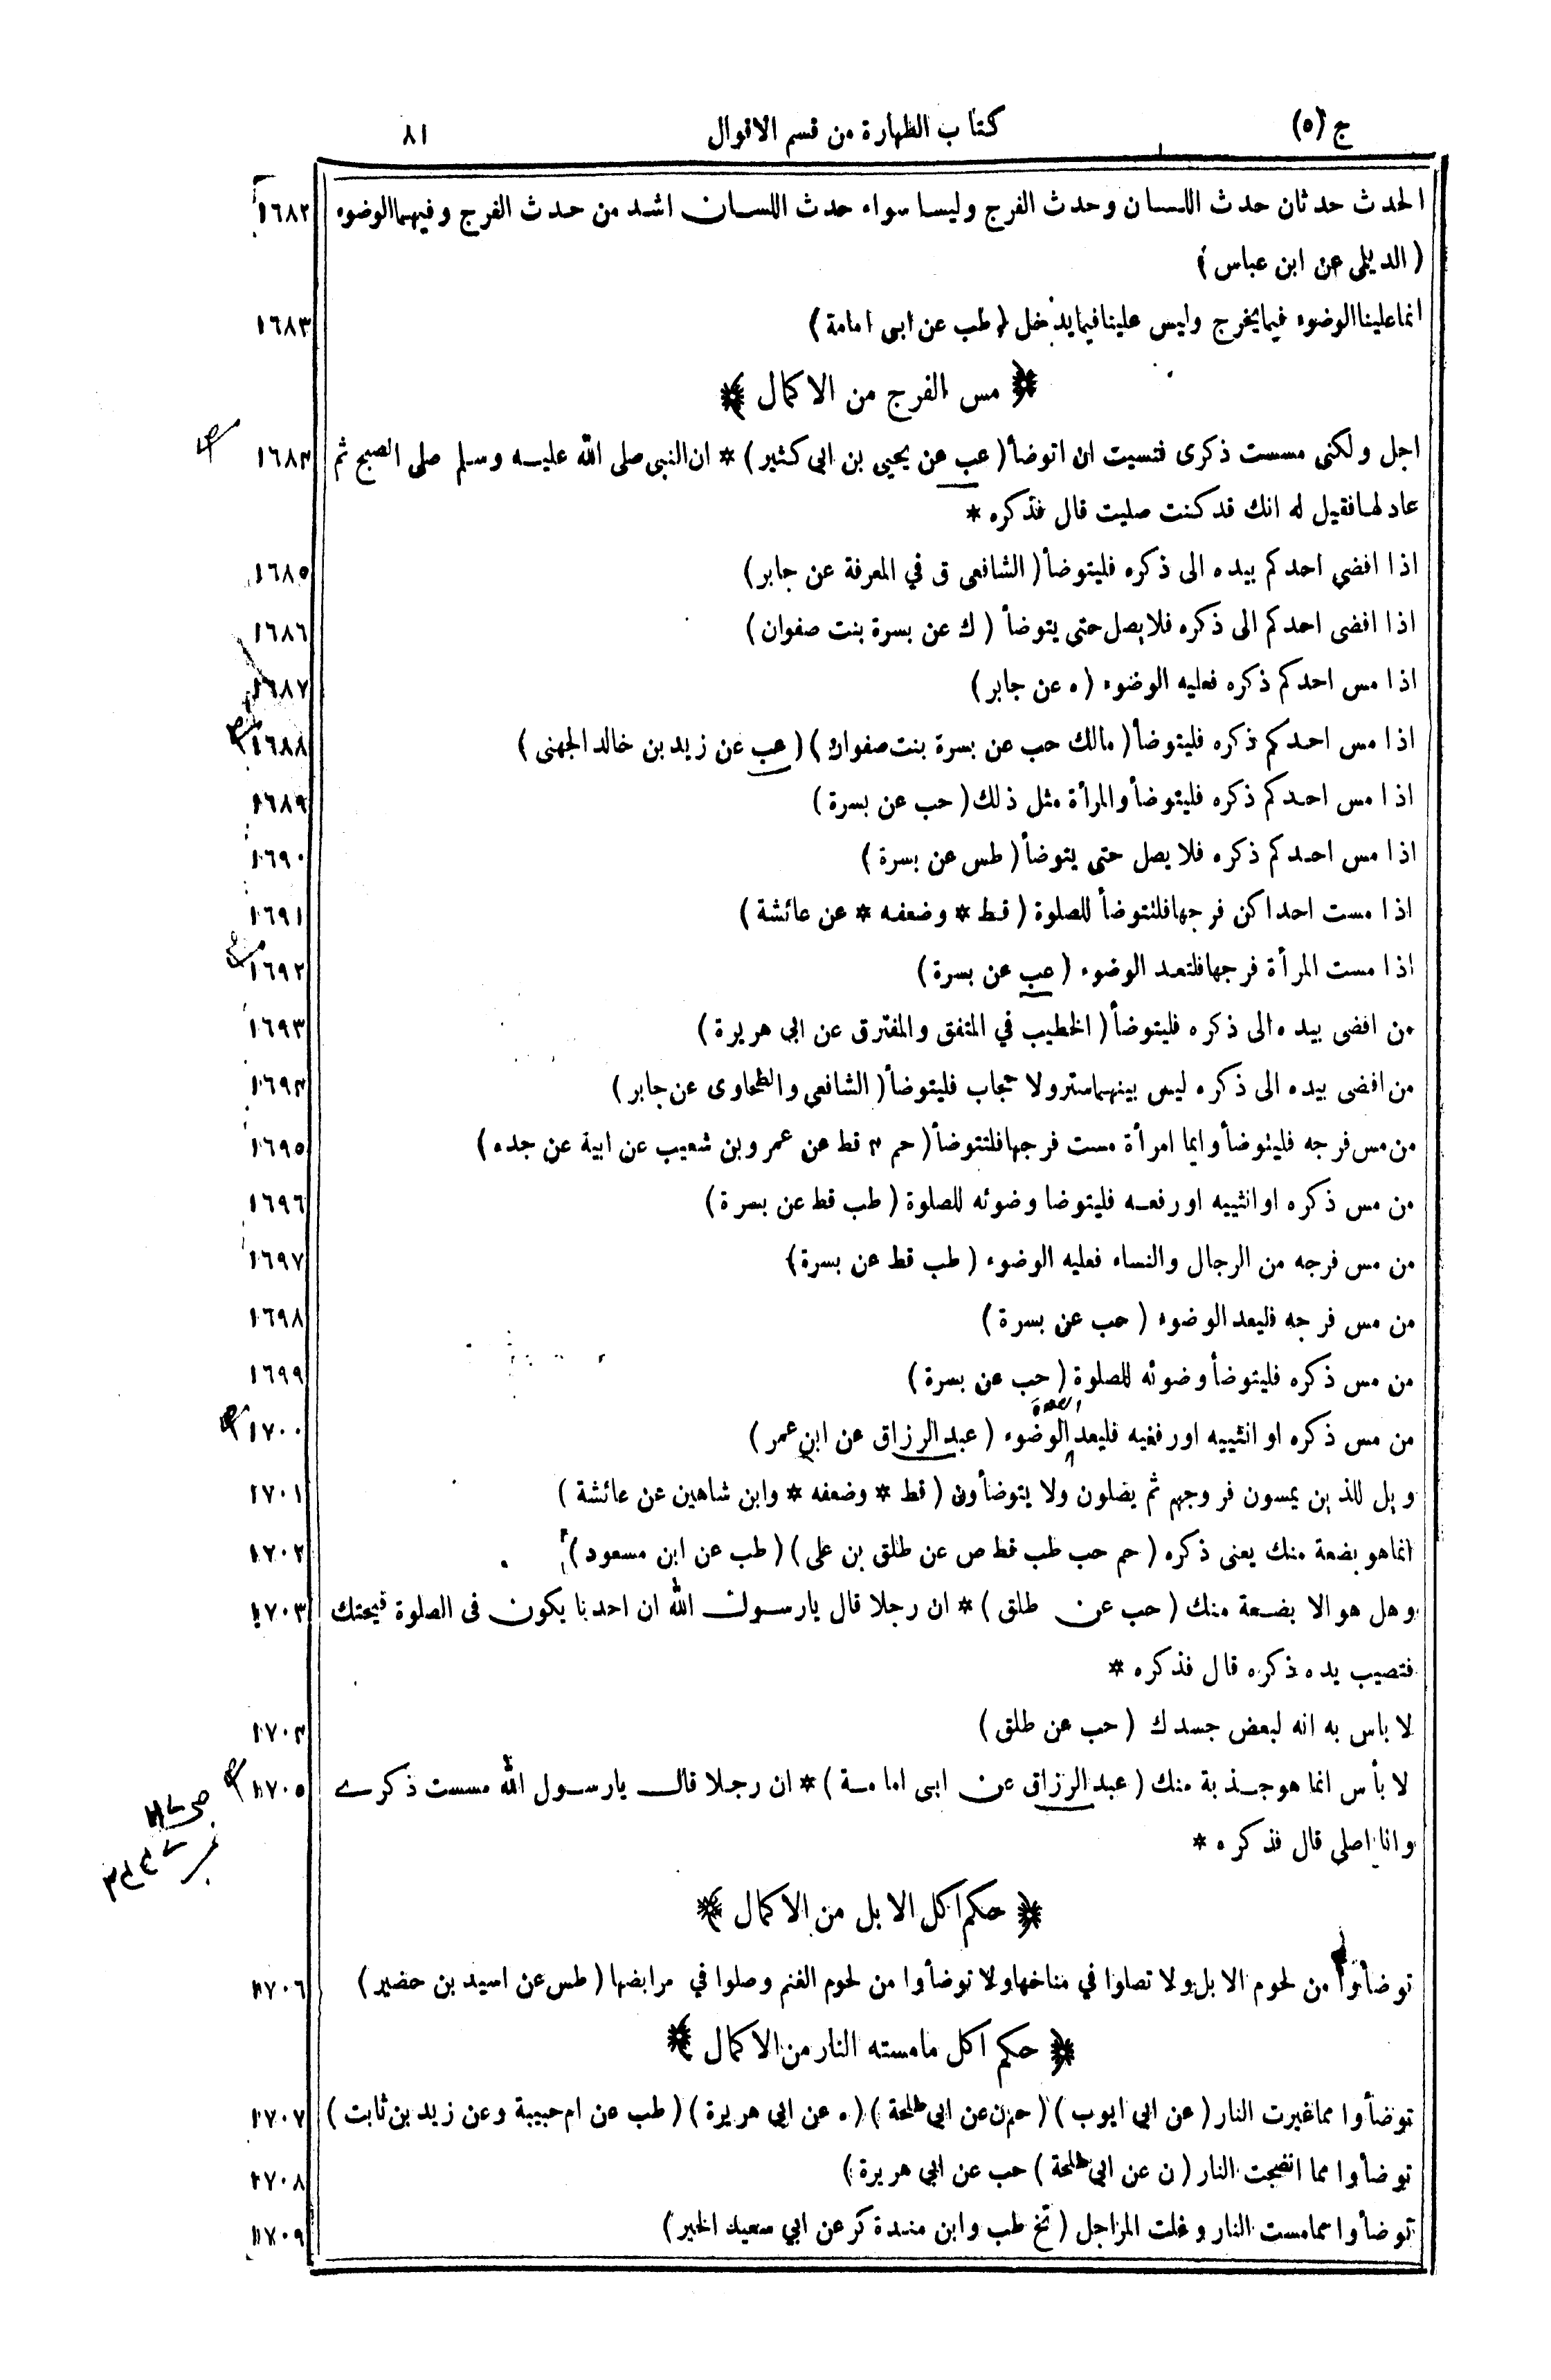 ج (٥) كتاب الطهارة من قسم الاقوال ٨١
الحدث حدثان حدث اللسان وحدث الفرج وليسا سواء حدث اللسان اشد من حدث الفرج وفيهما الوضوء ١٦٨٢
( الديلمى عن ابن عباس )
انما علينا الوضوء فيما يخرج وليس علينا فيما يدخل ( طب عن ابى امامة ) ١٦٨٣
﴿ مس الفرج من الاكمال ﴾
اجل ولكنى مسست ذكرى فنسيت ان اتوضأ ( عب عن يحيى بن ابى كثير ) * ان النبى صلى الله عليه وسلم صلى الصبح ثم ١٦٨٤
عاد لها فقيل له انك قد كنت صليت قال فذكره *
اذا افضى احدكم بيده الى ذكره فليتوضأ ( الشافعى ق في المعرفة عن جابر ) ١٦٨٥
اذا افضى احدكم الى ذكره فلا يصل حتى يتوضأ ( ك عن بسرة بنت صفوان ) ١٦٨٦
اذا مس احدكم ذكره فعليه الوضوء ( ه عن جابر ) ١٦٨٧
اذا مس احدكم ذكره فليتوضأ ( مالك حب عن بسرة بنت صفوان ) ( عب عن زيد بن خالد الجهنى ) ١٦٨٨
اذا مس احدكم ذكره فليتوضأ والمرأة مثل ذلك ( حب عن بسرة ) ١٦٨٩
اذا مس احدكم ذكره فلا يصل حتى يتوضأ ( طس عن بسرة ) ١٦٩٠
اذا مست احداكن فرجها فلتتوضأ للصلوة ( قط * وضعفه * عن عائشة ) ١٦٩١
اذا مست المرأة فرجها فلتعد الوضوء ( عب عن بسرة ) ١٦٩٢
من افضى بيده الى ذكره فليتوضأ ( الخطيب في المتفق والمفترق عن ابى هريرة ) ١٦٩٣
من افضى بيده الى ذكره ليس بينهما ستر ولا حجاب فليتوضأ ( الشافعى والطحاوى عن جابر ) ١٦٩٤
من مس فرجه فليتوضأ وايما امرأة مست فرجها فلتتوضأ ( حم ٤ قط عن عمرو بن شعيب عن ابية عن جده ) ١٦٩٥
من مس ذكره او انثييه او رفعه فليتوضا وضوئه للصلوة ( طب قط عن بسرة ) ١٦٩٦
من مس فرجه من الرجال والنساء فعليه الوضوء ( طب قط عن بسرة ) ١٦٩٧
من مس فرجه فليعد الوضوء ( حب عن بسرة ) ١٦٩٨
من مس ذكره فليتوضأ وضوئه للصلوة ( حب عن بسرة ) ١٦٩٩
من مس ذكره او انثييه او رفغيه فليعد الوضوء ( عبد الرزاق عن ابن عمر ) ١٧٠٠
ويل للذين يمسون فروجهم ثم يصلون ولا يتوضأون ( قط * وضعفه * وابن شاهين عن عائشة ) ١٧٠١
انما هو بضعة منك يعنى ذكره ( حم حب طب قط ص عن طلق بن على ) ( طب عن ابن مسعود ) ١٧٠٢
وهل هو الا بضعة منك ( حب عن طلق ) * ان رجلا قال يا رسول الله ان احدنا يكون فى الصلوة فيحتك ١٧٠٣
فتصيب يده ذكره قال فذكره *
لا باس به انه لبعض جسدك ( حب عن طلق ) ١٧٠٤
لا بأس انما هو جذبة منك ( عبد الرزاق عن ابى امامة ) * ان رجلا قال يا رسول الله مسست ذكرے ١٧٠٥
وانا اصلى قال فذكره *
﴿ حكم اكل الابل من الاكمال ﴾
توضأوا من لحوم الابل ولا تصلوا في مناخها ولا توضأوا من لحوم الغنم وصلوا في مرابضها ( طس عن اسيد بن حضير ) ١٧٠٦
﴿ حكم اكل ما مسته النار من الاكمال ﴾
توضأوا مما غيرت النار ( عن ابى ايوب ) ( حم ن عن ابى طلحة ) ( ه عن ابى هريرة ) ( طب عن ام حبيبة وعن زيد بن ثابت ) ١٧٠٧
توضأوا مما انضجت النار ( ن عن ابى طلحة ) حب عن ابى هريرة ) ١٧٠٨
توضأوا مما مست النار وغلت المراجل ( تخ طب وابن مندة كر عن ابي سعيد الخير ) ١٧٠٩